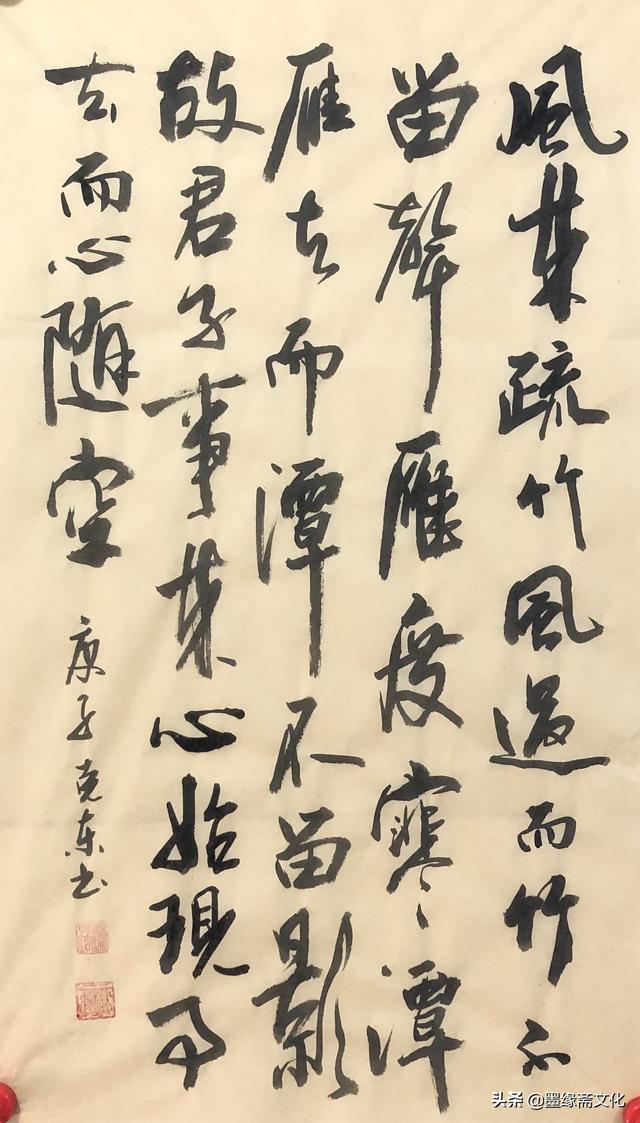 風来疏竹風過而竹不
留聲雁度寒潭
雁去而潭不留影
故君子事来心始現事
去而心隨空
庚子克東书
头条@墨缘斋文化